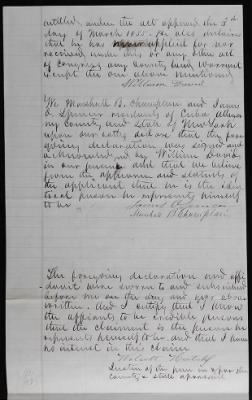 entitled, under the act approved the 3rd
day of March 1855. He also declares
that he has never applied for nor
received under this or any other act
of Congress any County land Warrant
except the one above mentioned
William Davis
We Marshall B. Champlain and
residents of Cuba Allega
ny County and State of New York
upon our oaths declare that the fore
going declaration was signed and
acknowledged by William Davis
in our presence and that we believe
from the appearance and statements of
the applicant that he is the iden
tical person he represents himself
to be
Marshall B Champlain
The foregoing declaration and affi
davit were sworn to and subscribed
before me on the day and year above
written. And I certify that I know
the affiants to be credible persons
that the claimant is the person he
represents himself to be and that I have
no interest in this claim
Justice of the peace in & for the
County & State aforesaid